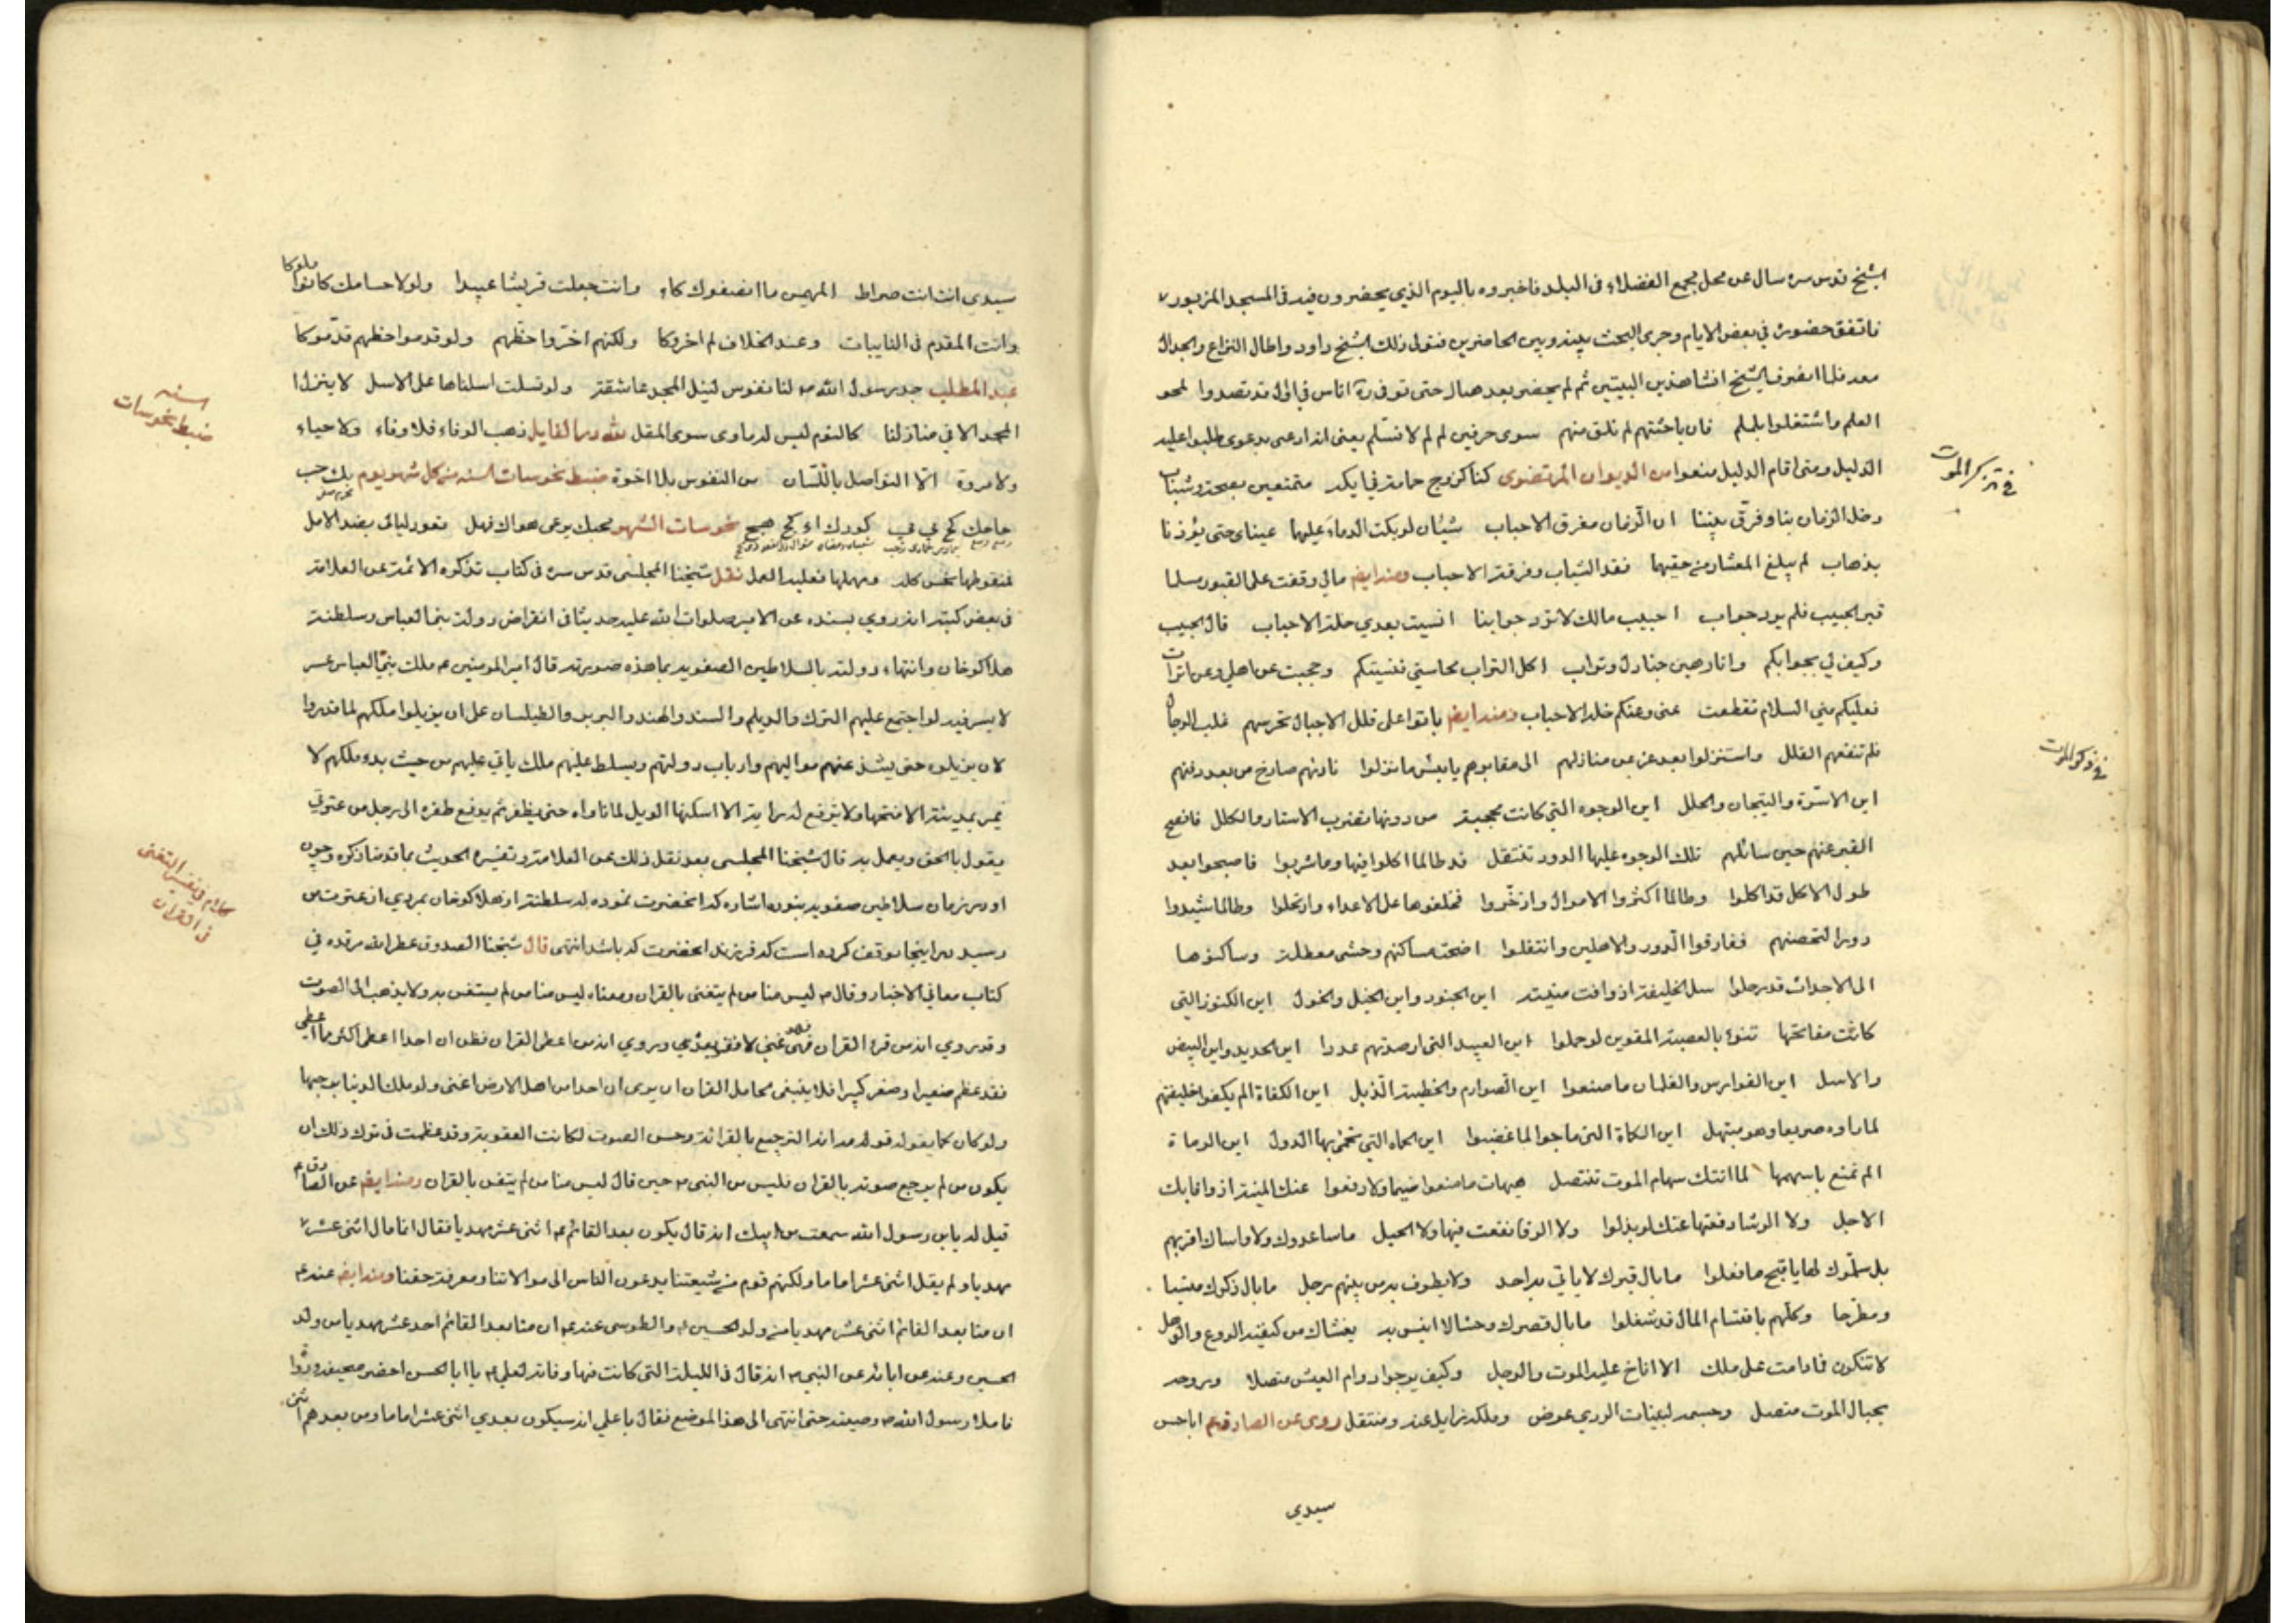 الشيخ قدس سره سال عن محل مجمع الفضلاء في البلد فاخبروه باليوم الذي يحضرون فيه في المسجد المزبور
فاتفق حضوره في بعض الايام وجرى البحث بينه وبين الحاضرين فتولى ذلك الشيخ داود واطال النزاع والجدال
معه فلما انصرف الشيخ انشا هذين البيتين ثم لم يحضر بعد حتى توفي ره اناس في اوال قد تصدوا لمحو
العلم واشتغلوا بلم لم فان باحثتهم لم تلق منهم سوى حرفين لم لم لا نسلم يعني انه ادعى مدعوى طلبوا عليه
الدليل ومتى اقام الدليل منعوا من الديوان المرتضوى كنا كزوج حمامة في ايكة متمتعين بصحة وشباب
دخل الزمان بنا وفرق بيننا ان الزمان مفرق الاحباب شيئان لو بكت الدماء عليهما عيناى حتى يؤذنا
بذهاب لم يبلغ المعشار من حقيهما فقد الشباب وفرقة الاحباب ومنه ايضا مالي وقفت على القبور مسلما
قبر الحبيب فلم يرد جواب احبيب مالك لا ترد جوابنا انسيت بعدي خلة الاحباب قال الحبيب
وكيف لي بجوابكم وانا رهين جنادل وتراب اكل التراب محاسني فنسيتكم وحجبت عن اهلي وعن اتراب
فعليكم مني السلام تقطعت عنى وعنكم خلة الاحباب ومنه ايضا باتوا على قلل الاجبال تحرسهم غلب الرجال
فلم تنفعهم القلل واستنزلوا بعد عز عن منازلهم الى مقابرهم يا بئس ما نزلوا نادتهم صارخ من بعد دفنهم
اين الاسرة والتيجان والحلل اين الوجوه التي كانت محجبة من دونها تضرب الاستار والكلل فافصح
القبر عنهم حين سائلهم تلك الوجوه عليها الدود تنتقل قد طالما اكلوا فيها وما شربوا فاصبحوا بعد
طول الاكل قد اكلوا وطالما اكثروا الاموال وادخروا فخلفوها على الاعداء وارتحلوا وطالما شيدوا
دورا لتحصنهم ففارقوا الدور والاهلين وانتقلوا اضحت مساكنهم وحشى معطلة وساكنوها
الى الاجداث قد رحلوا سل الخليفة اذ وافت منيته اين الجنود واين الخيل والخول اين الكنوز التي
كانت مفاتحها تنوء بالعصبة المقوين لو حملوا اين العبيد التي ارصدتهم عددا اين الحديد واين البيض
والاسل اين الفوارس والغلمان ما صنعوا اين الصوارم والخطية الذبل اين الكفاة الم يكفوا خليفتهم
لما راوه صريعا وهو يبتهل اين الكماة التي ماجوا لما غضبوا اين الحماه التي تحمى بها الدول اين الرماة
الم تمنع باسهمها لما اتتك سهام الموت تنتصل هيهات ما منعوا ضيما ولا دفعوا عنك المنية اذ وافا بك
الاجل ولا الرشا دفعتها عنك لو بذلوا ولا الرقا نفعت فيها ولا الحيل ما ساعدوك ولا واساك اقربهم
بل سلموك لها يا قبح ما فعلوا ما بال قبرك لا ياتي به احد ولا يطوف به من بينهم رجل ما بال ذكرك منسيا
ومطرحا وكلهم باقتسام المال قد شغلوا ما بال قصرك وحشا لا انيس به يغشاك من كنفيه الروع والوهل
لا تنكرن فما دامت على ملك الا اناخ عليه الموت والوجل وكيف يرجوا دوام العيش متصلا وروحه
بحبال الموت متصل وجسمه لبنيات الردى غرض وملكه زايل عنه ومنتقل روى عن الصادق ع اباحسن
سيدي
في تذكر الموت
في ذكر الموت
سيدي انت انت صراط المهيمن ما انصفوك كاء وانت جعلت قريشا عبيدا ولولا حسامك كانوا ملوكا
وانت المقدم في النايبات وعند الخلاف لم اخروكا ولكنهم اخروا حظهم ولو قدموا حظهم قدموكا
عبد المطلب جد رسول الله ص لنا نفوس لنيل المجد عاشقة ولو تسلت اسلناها على الاسل لا ينزل
المجد الا في منازلنا كالنوم ليس له ماوى سوى المقل لله در القايل ذهب الوفاء فلا وفاء ولا حياء
ولا مروة الا التواصل باللسان من النفوس بلا اخوة ضبط نحوسات السنه من كل شهر يوم بك حب
نحوسات الشهر محبك يرعى هواك فهل تعود ليالى بضد الامل
فمنقوطها نحس كله ومهملها فعليه العمل نقل شيخنا المجلسى قدس سره في كتاب تذكره الائمة عن العلامة
في بعض كتبه انه روي بسنده عن الامير صلوات الله عليه حديثا في انقراض دولة بني العباس وسلطنة
هلاكوخان وانتهاء دولته بالسلاطين الصفويه بما هذه صورته قال امير المومنين ع ملك بني العباس عسر
لا يسر فيه لو اجتمع عليهم الترك والديلم والسند والهند والبربر والطيلسان على ان يزيلوا ملكهم لما قدروا
لان يزيلوه حتى يشذ عنهم مواليهم وارباب دولتهم ويسلط عليهم ملك ياتي عليهم من حيث بدء ملكهم لا
يمر بمدينة الا فتحها ولا يرفع له راية الا اسكنها الويل لما ناواه حتى يظفر ثم يدفع ظفره الى رجل من عترتي
يقول بالحق ويعمل به قال شيخنا المجلسي بعد نقل ذلك عن العلامة وتفسيره الحديث بما قدمنا ذكره وچون
او در زمان سلاطين صفويه بنوده اشاره كه انحضرت نموده له سلطنت از هلاكوخان بمردي از عترت من
رسيد در اينجا توقف كرده است كه فرزند انحضرت كه باشد انتهى قال شيخنا الصدوق عطر الله مرقده في
كتاب معاني الاخبار وقال ص ليس منا من لم يتغنى بالقران ومعناه ليس منا من لم يستغن به ولا يذهب الى الصوت
وقد روي ان من قرء القران فهو غني لا فقر بعده وروي ان من اعطى القران فظن ان احدا اعطى اكثر مما اعطى
فقد عظم صغيرا وصغر كبيرا فلا ينبغى لحامل القران ان يرى ان احدا من اهل الارض اغنى ولو ملك الدنيا برحبها
ولو كان كما يقوله قوله انه الترجيع بالقرائة وحسن الصوت لكانت العقوبة وقد عظمت في ترك ذلك ان
يكون من لم يرجع صوته بالقران فليس من النبى ص حين قال ليس منا من لم يتغن بالقران ومنه ايضا عن الصادق ع
قيل له يابن رسول الله سمعت من ابيك انه قال يكون بعد القائم ع اثنى عشر مهديا فقال انما قال اثنى عشر
مهديا ولم يقل اثنى عشر اماما ولكنهم قوم من شيعتنا يدعون الناس الى موالاتنا ومعرفة حقنا ومنه ايضا عنه ع
ان منا بعد القائم اثنى عشر مهديا من ولد الحسين ع والطوسى عنه ع ان منا بعد القائم احد عشر مهديا من ولد
الحسين وعنه عن ابائه عن النبي ص انه قال في الليلة التي كانت فيها وفاته لعلي ع يا ابا الحسن احضر صحيفة ودواة
فاملا رسول الله ص وصيته حتى انتهى الى هذا الموضع فقال يا علي انه سيكون بعدي اثنى عشر اماما ومن بعدهم اثنى
ضبط نحوسات السنه
كلام في تفسير التغنى في القران